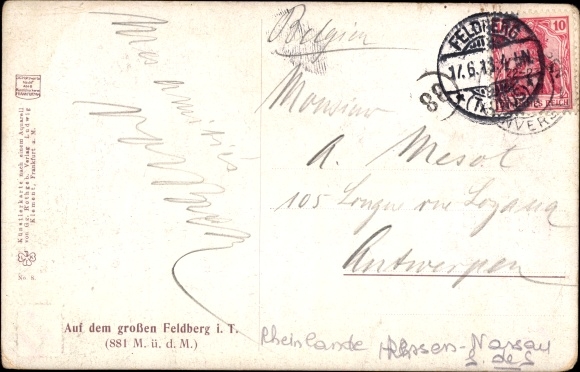 Belgien
FELDBERG
17.6.13. 4-5N.
(TAUNUS)
10
88
Monsieur
A. Mesot
105 Longue rue Lozana
Antwerpen
Mes amitiés
Künstlerkarte nach einem Aquarell
von Gg. Rothgeb. Verlag Ludwig
Klement, Frankfurt a. M.
No 8.
Auf dem großen Feldberg i. T.
(881 M. ü. d. M.)
Rheinlande Hessen-Nassau